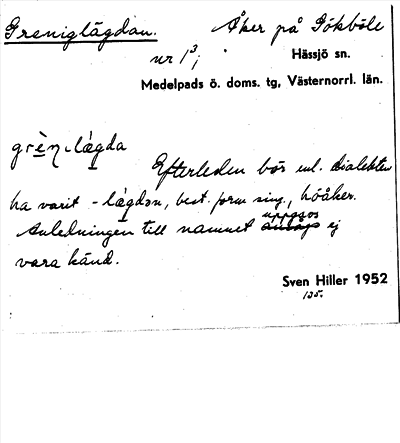 Greniglägdan. Åker på Gökböle
nr 1³;
Hässjö sn.
Medelpads ö. doms. tg, Västernorrl. län.
grèn lägda
Efterleden bör enl. dialekten
ha varit -lägdən, best. form sing., höåker.
Anledningen till namnet uppgos ej
vara känd.
Sven Hiller 1952
135.